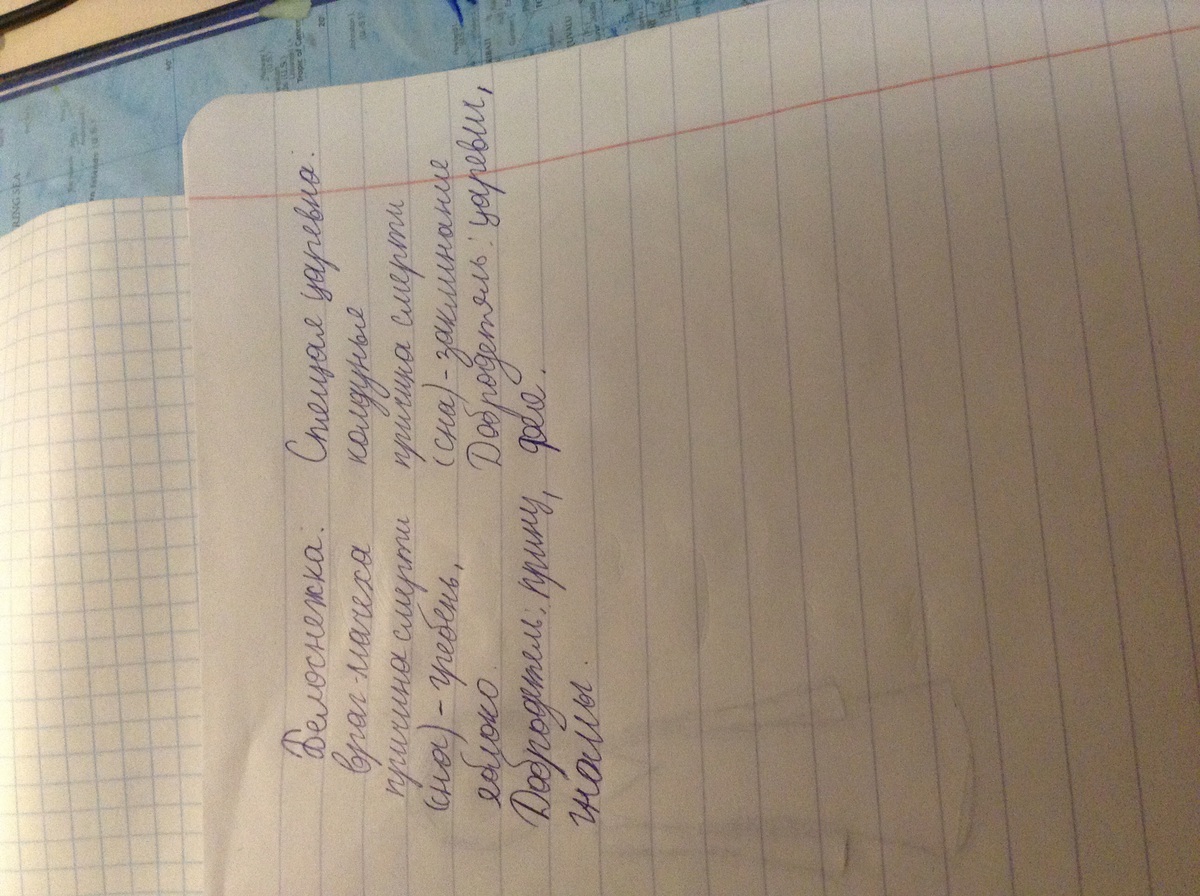 Белоснежка:
враг-мачеха
причина смерти
(сна) - гребень,
яблоко.
Добродетели: принц,
гномы.
Спящая царевна:
колдунья
причина смерти
(сна) - заклинание
Добродетель: царевич,
фея.